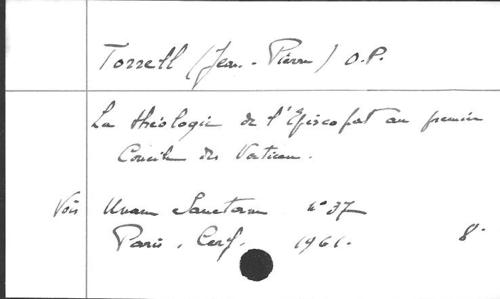 Torrell (Jean-Pierre) O.P.
La théologie de l'Episcopat au premier
Concile du Vatican.
Voir Unam Sanctam n° 37
Paris, Cerf. 1961. 8°